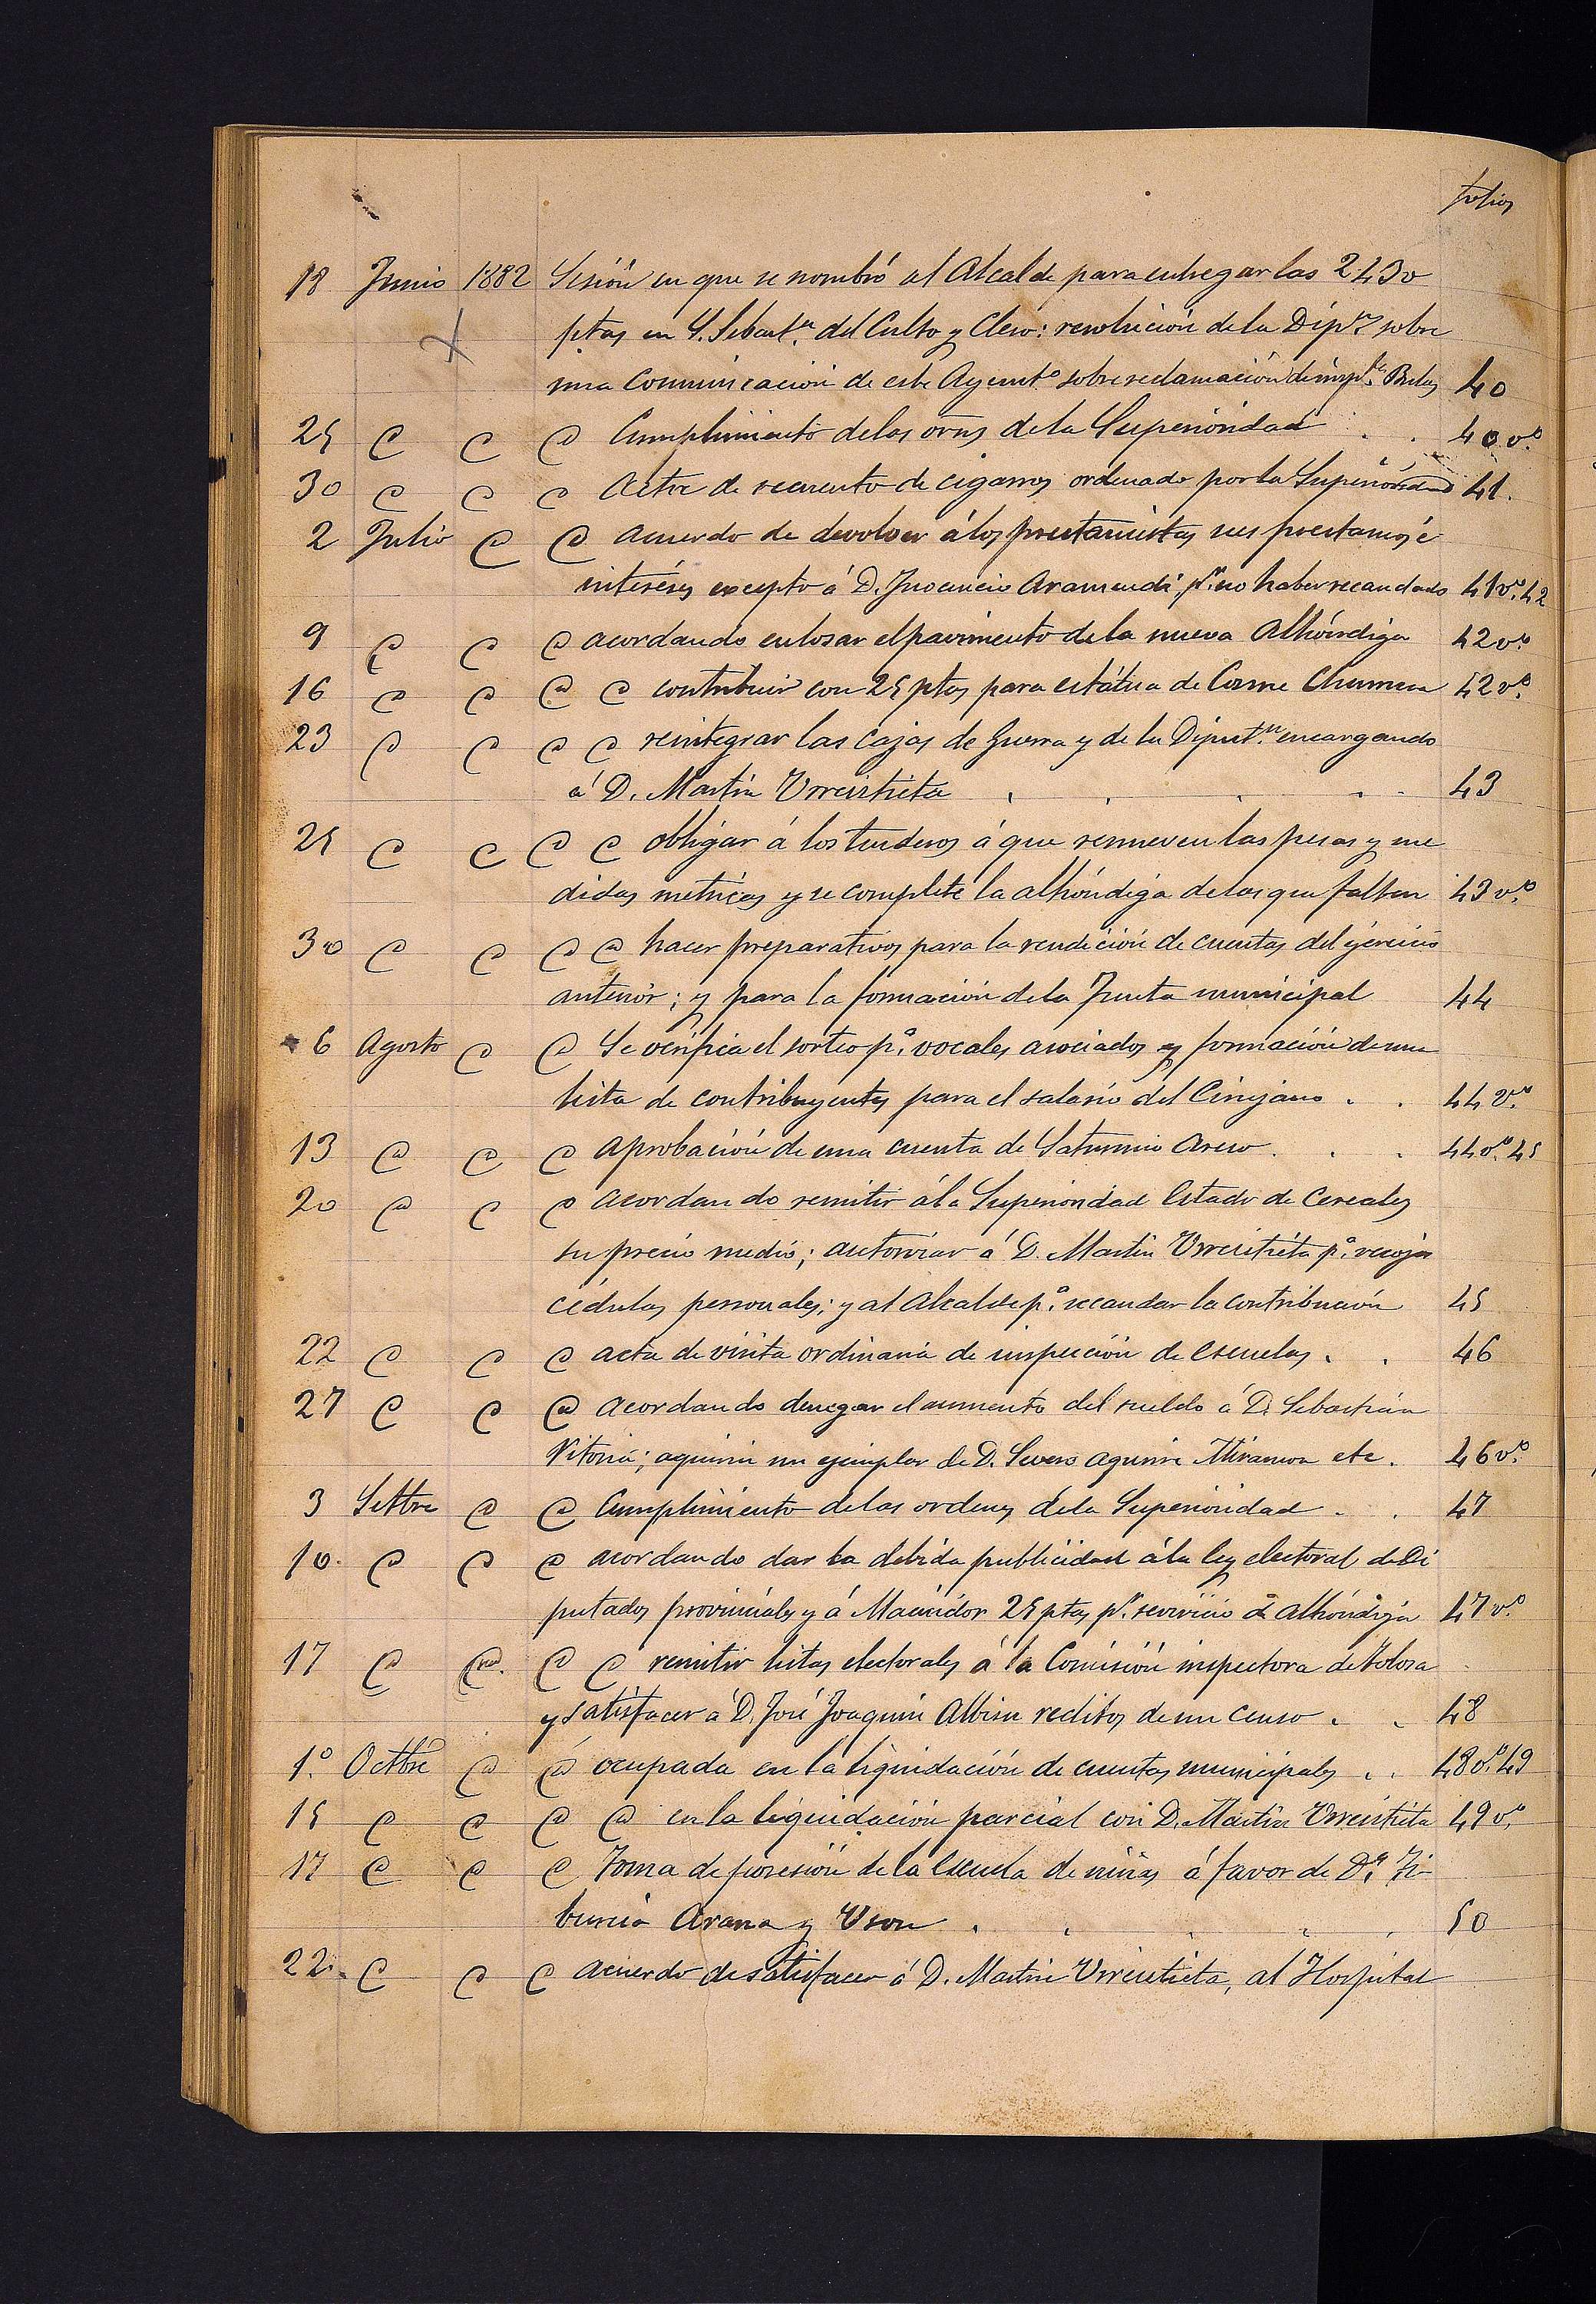 folios
18 Junio 1882 Sesión en que se nombró al Alcalde para entregar las 2430
ptas en S. Sebast.n del Culto y Clero: resolución de la Dip.n sobre
una Comunicación de este Ayunt.o sobre reclamación de Bulas 40
25 @ @ @ Cumplimiento de las orns de la Superioridad . . 40 v.o
30 @ @ @ Acta de recuento de cigarros ordenado por la Superioridad 41.
2 Julio @ @ acuerdo de devolver á los prestamistas sus prestamos é
interéses excepto á D. Inocencio Aramendi p.r no haber recaudado 41 v.o 42
9 @ @ @ acordando enlosar el pavimento de la nueva Alhóndiga 42 v.o
16 @ @ @ @ contribuir con 25 ptas para estátua de Cosme Churruca 42 v.o
23 @ @ @ @ reintegrar las cajas de Guerra y de la Diput.n encargando
á D. Martín Urreistieta . . . . . 43
25 @ @ @ @ obligar á los tenderos á que renueven las pesas y me
didas metricas y se complete la alhóndiga de las que faltan 43 v.o
30 @ @ @ @ hacer preparativos para la rendición de cuentas del ejercicio
anterior; y para la formación de la Junta municipal 44
6 Agosto @ @ Se verifica el sorteo p.a vocales asociados y formación de una
lista de contribuyentes para el salario del Cirujano . . 44 v.o
13 @ @ @ aprobación de una cuenta de Saturnino . . . 44 v.o 45
20 @ @ @ acordando remitir á la Superioridad Estado de Cereales
su precio medio; autorizar á D. Martin Urreistieta p.a recojer
cédulas personales; y al Alcalde p.a recaudar la contribución 45
22 @ @ @ acta de visita ordinaria de inspección de escuelas . . 46
27 @ @ @ acordando denegar el aumento del sueldo á D. Sebastián
Vitoria; aquirir un ejemplar de D. Severo Aguirre Miramon etc. 46 v.o
3 Settbre @ @ Cumplimiento de las ordenes de la Superioridad . . 47
10. @ @ @ acordando dar la debida publicidad á la ley electoral de Di
putados provinciales y á 25 ptas p.r servicio de Alhóndiga 47 v.o
17 @ @ @ @ remitir listas electorales á la Comisión inspectora de Tolosa
y satisfacer á D. José Joaquin Albisu reditos de un censo . . 48
1.o Octtbre @ @ ocupada en la liquidación de cuentas municipales . . 48 v.o 49
15 @ @ @ @ en la liquidación parcial con D. Martin Urreistieta 49 v.o
17 @ @ @ Toma de posesión de la Escuela de niñas á favor de D.a Ti
burcia Arana y Uson . . . . . 50
22. @ @ @ acuerdo de satisfacer á D. Martin Urreistieta, al Hospital